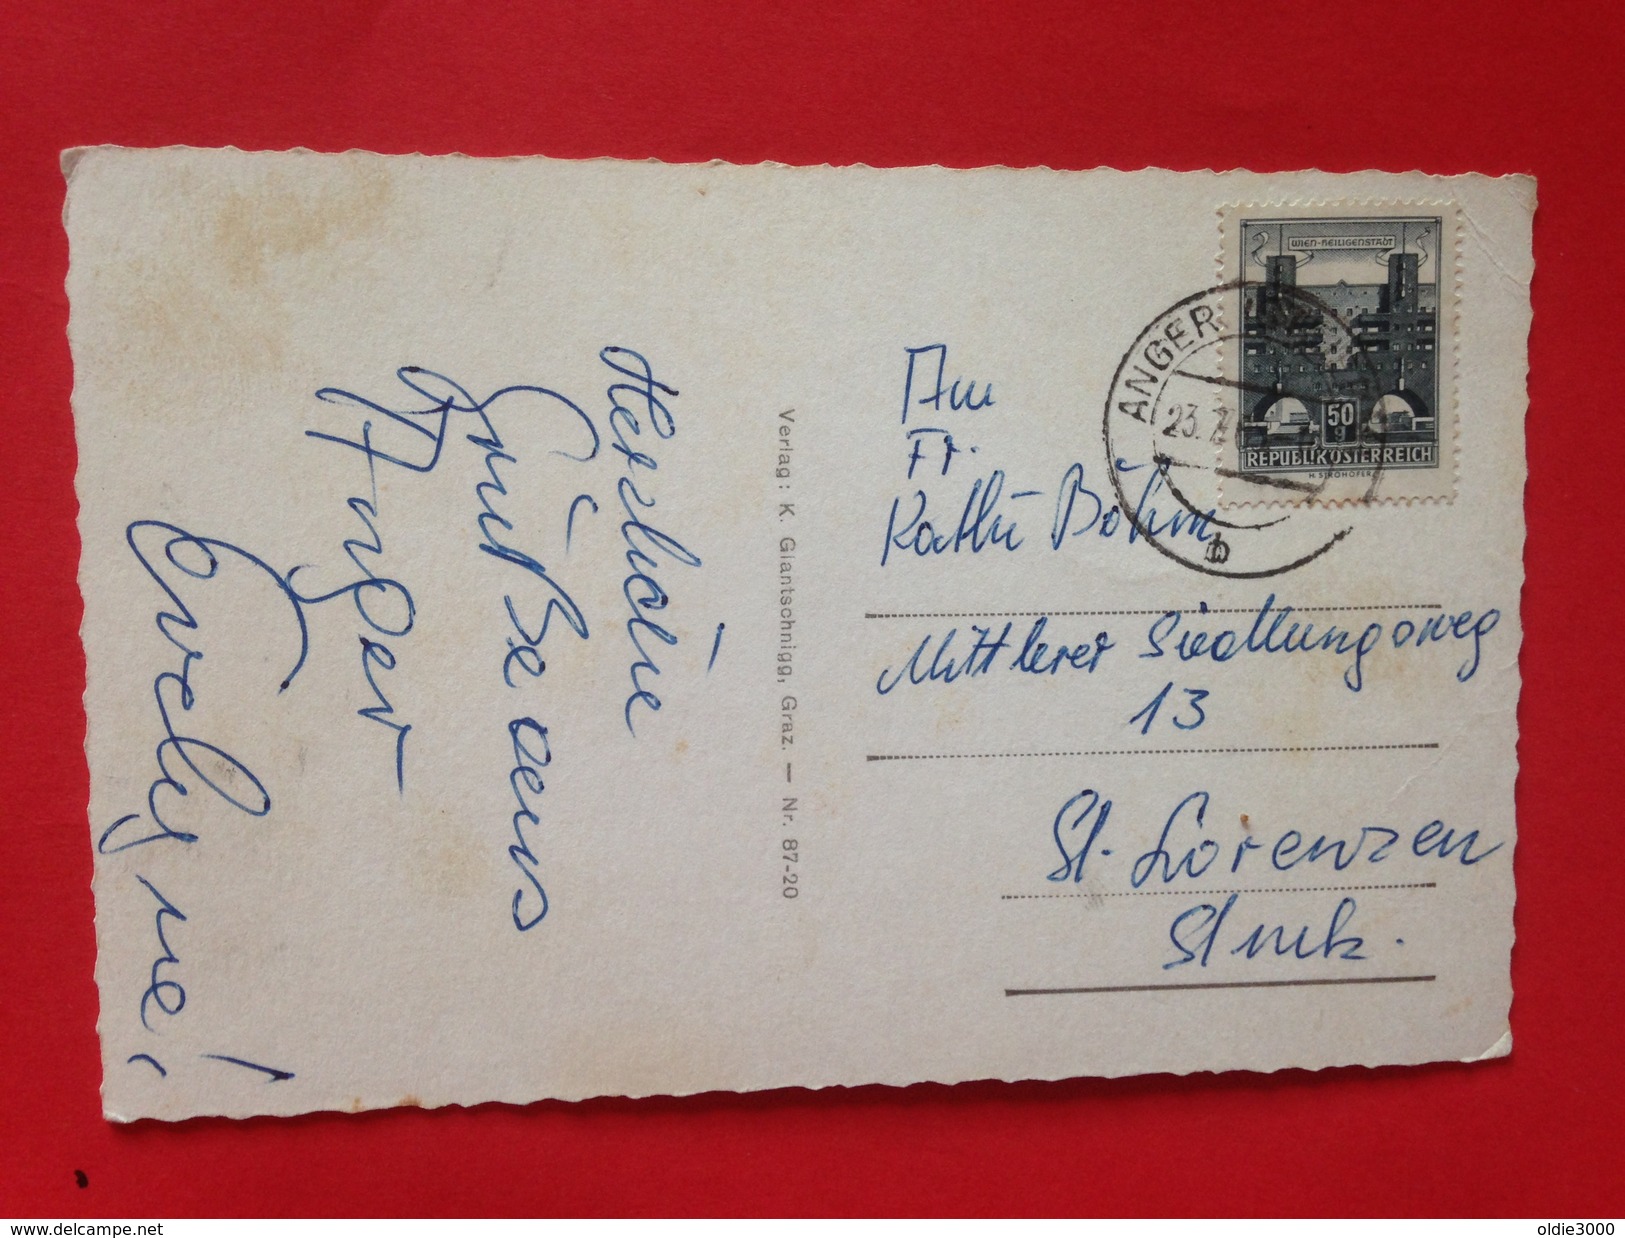 Herzliche
Grüße aus
Anger
Evelyne!
Verlag: K. Glantschnigg, Graz. — Nr. 87-20
WIEN-HEILIGENSTADT
50
g
REPUBLIK ÖSTERREICH
H. STROHOFER
ANGER
23.
b
An
Fr.
Kathi Böhm
Mittlerer Siedlungsweg
13
St. Lorenzen
Stmk.
www.delcampe.net
oldie3000